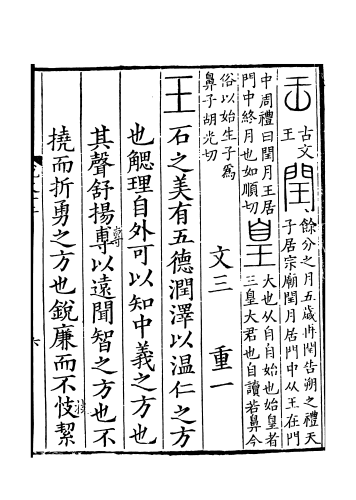 古文
王
閏
餘分之月五歲再閏告朔之禮天
子居宗廟閏月居門中从王在門
中周禮曰閏月王居
門中終月也如順切
皇
大也从自自始也始皇者
三皇大君也自讀若鼻今
俗以始生子爲
鼻子胡光切
文三 重一
王
石之美有五德潤澤以温仁之方
也䚡理自外可以知中義之方也
其聲舒揚尃以遠聞智之方也不
撓而折勇之方也銳廉而不忮絜
六